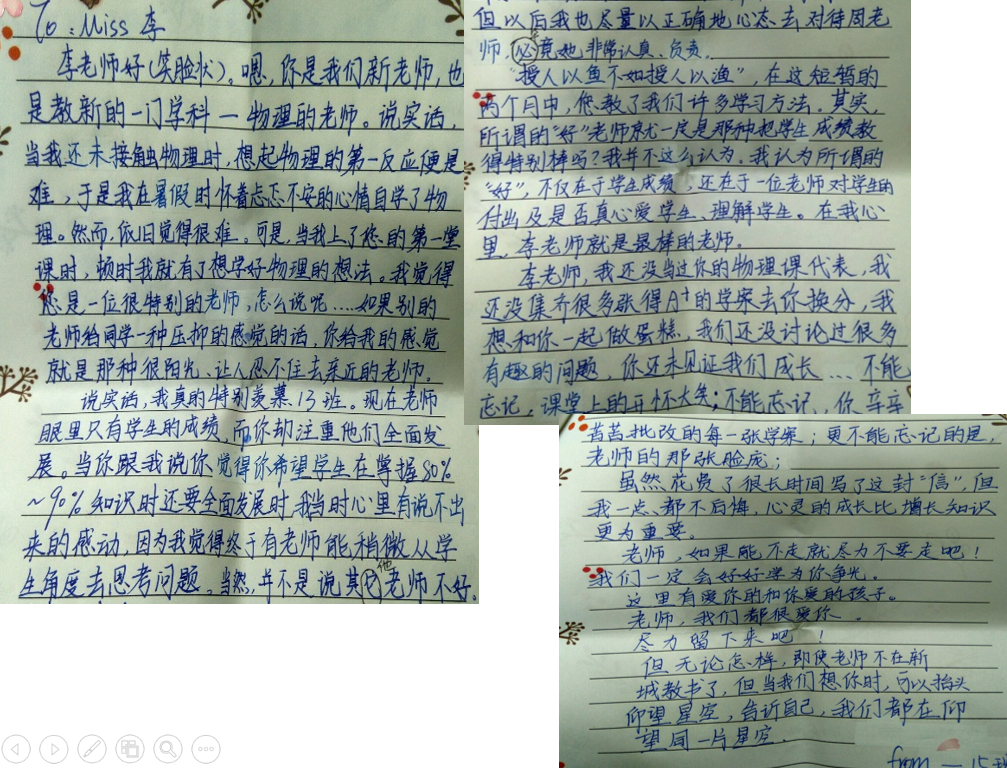 To：Miss 李
李老师好(笑脸状)。嗯，你是我们新老师，也
是教新的一门学科一物理的老师。说实话，
当我还未接触物理时，想起物理的第一反应便是
难，于是我在暑假时怀着忐忑不安的心情自学了物
理。然而，依旧觉得很难。可是，当我上了您的第一堂
课时，顿时我就有了想学好物理的想法。我觉得
您是一位很特别的老师，怎么说呢……如果别的
老师给同学一种压抑的感觉的话，你给我的感觉
就是那种很阳光、让人忍不住去亲近的老师。
说实话，我真的特别羡慕13班。现在老师
眼里只有学生的成绩，而你却注重他们全面发
展。当你跟我说你觉得你希望学生在掌握80%
~90%知识时还要全面发展时，我当时心里有说不出
来的感动，因为我觉得终于有老师能稍微从学
生角度去思考问题。当然，并不是说其他老师不好。
但以后我也尽量以正确地心态去对待周老
师，必竟她非常认真、负责。
“授人以鱼不如授人以渔”，在这短暂的
两个月中，您教了我们许多学习方法。其实，
所谓的“好”老师就一定是那种把学生成绩教
得特别棒吗？我并不这么认为。我认为所谓的
“好”，不仅在于学生成绩，还在于一位老师对学生的
付出及是否真心爱学生、理解学生。在我心
里，李老师就是最棒的老师。
李老师，我还没当过你的物理课代表，我
还没集齐很多张得A⁺的学案去你换分，我
想和你一起做蛋糕，我们还没讨论过很多
有趣的问题，你还未见证我们成长……不能
忘记，课堂上的开怀大笑；不能忘记，你辛辛
苦苦批改的每一张学案；更不能忘记的是，
老师的那张脸庞；
虽然花费了很长时间写了这封“信”，但
我一点都不后悔，心灵的成长比增长知识
更为重要。
老师，如果能不走就尽力不要走吧！
我们一定会好好学为你争光。
这里有爱你的和你爱的孩子。
老师，我们都很爱你。
尽力留下来吧！
但无论怎样，即使老师不在新
城教书了，但当我们想你时，可以抬头
仰望星空，告诉自己，我们都在仰
望同一片星空。
from — 15班